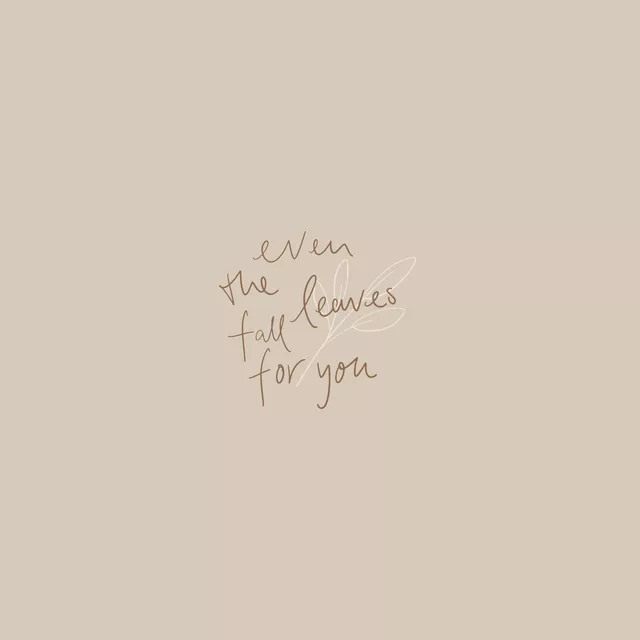 even
the leaves
fall
for you